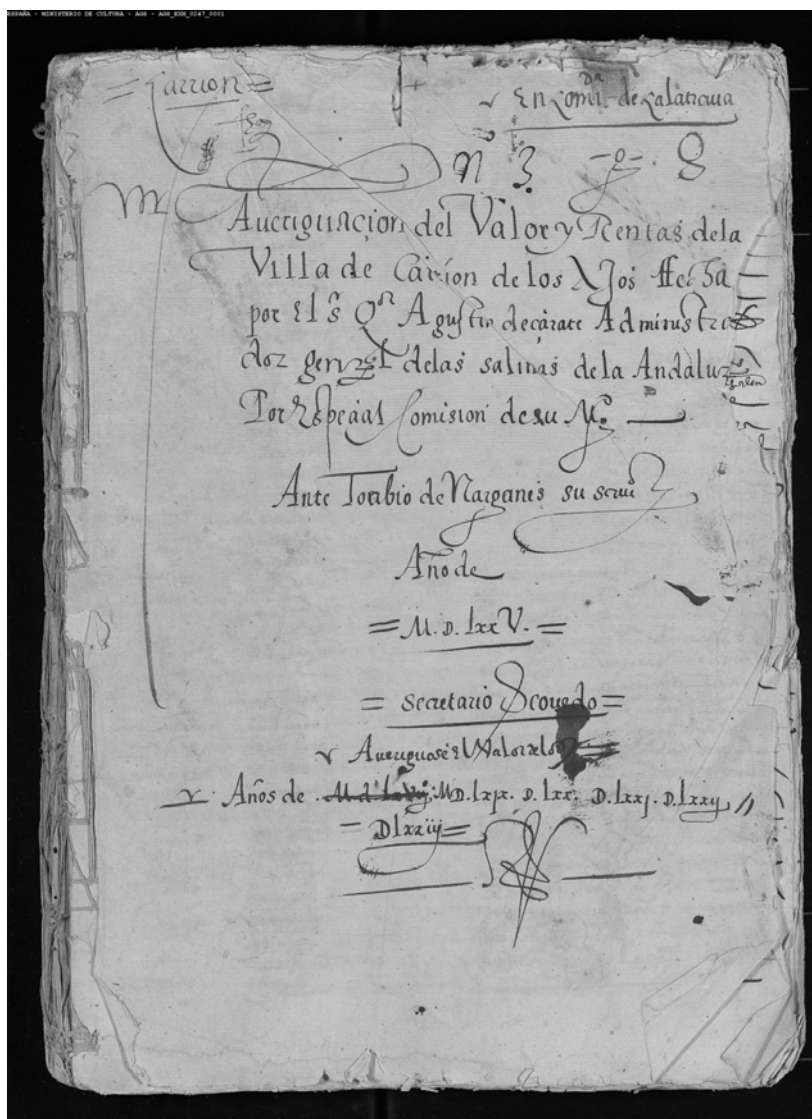 ESPAÑA - MINISTERIO DE CULTURA - AGS - AGS_EXH_0247_0001
= Carrion =
v En comi.da de Calatraua
n 3 - 8
Aueriguacion del Valor y Rentas dela
Villa de Carrion de los Ajos ffecha
por El s.r Don Agustin de çarate Administra
dor general delas salinas dela Andaluz.a
Por Especial Comision de su M.
Ante Toribio de Narganes su scriu.
Año de
= M. D. lxx V. =
= Secretario Scouedo =
v Aueriguase El Valor delos
v Años de M. d. lxViij. MD. lxix. D. lxx. D. lxxj. D. lxxij //
= Dlxxiij =